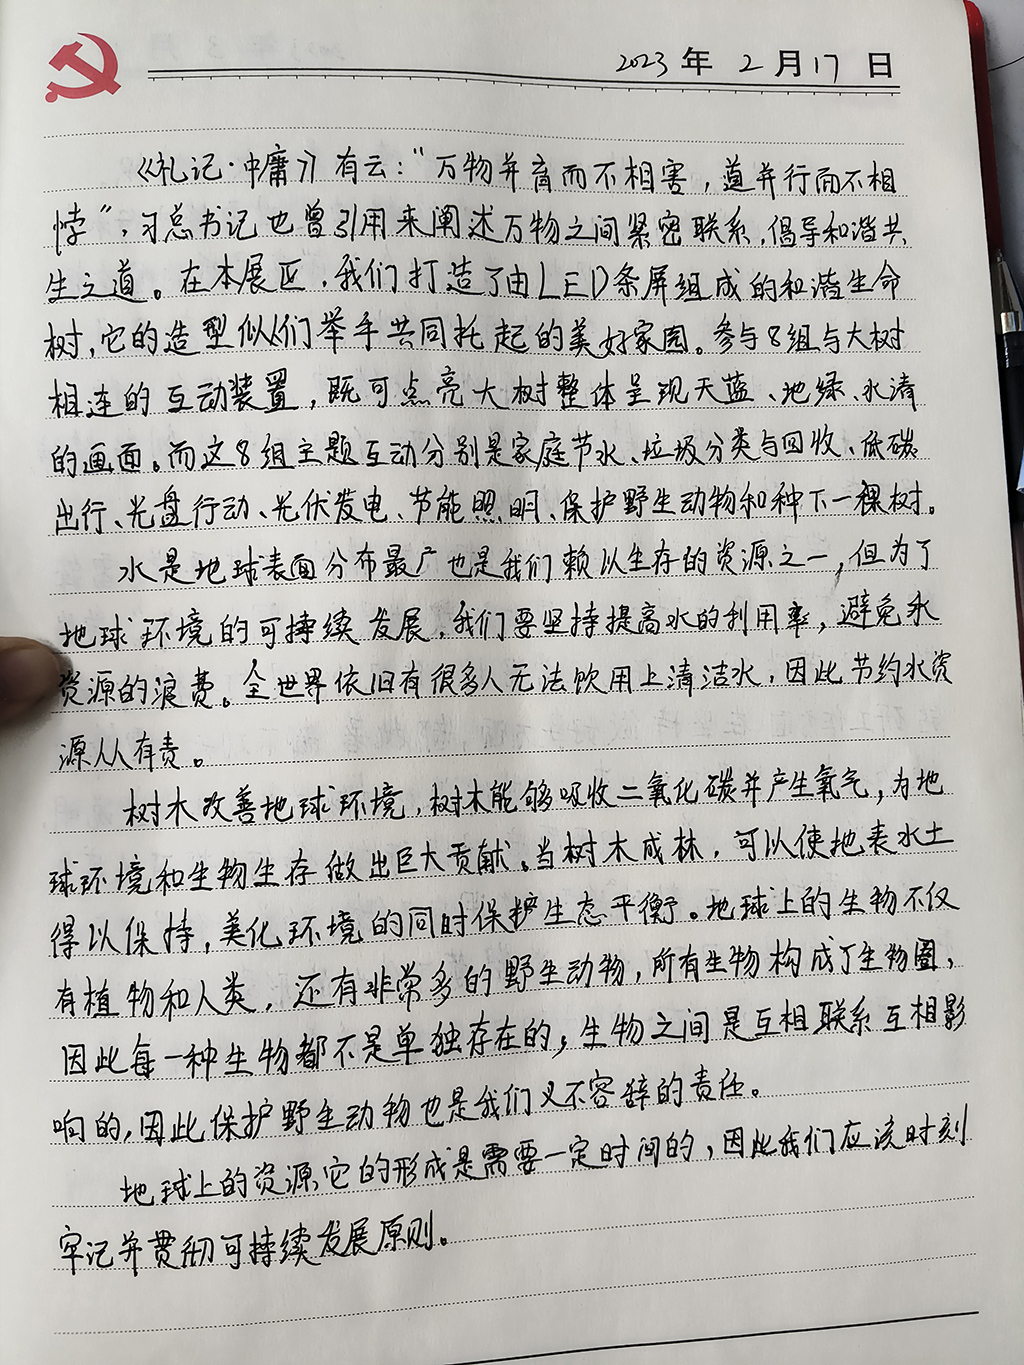 2023年2月17日
《礼记·中庸》有云：“万物并育而不相害，道并行而不相
悖”，习总书记也曾引用来阐述万物之间紧密联系，倡导和谐共
生之道。在本展区，我们打造了由LED条屏组成的和谐生命
树，它的造型似人们举手共同托起的美好家园。参与8组与大树
相连的互动装置，既可点亮大树整体呈现天蓝、地绿、水清
的画面。而这8组主题互动分别是家庭节水、垃圾分类与回收、低碳
出行、光盘行动、光伏发电、节能照明、保护野生动物和种下一棵树。
水是地球表面分布最广也是我们赖以生存的资源之一，但为了
地球环境的可持续发展，我们要坚持提高水的利用率，避免水
资源的浪费。全世界依旧有很多人无法饮用上清洁水，因此节约水资
源人人有责。
树木改善地球环境，树木能够吸收二氧化碳并产生氧气，为地
球环境和生物生存做出巨大贡献。当树木成林，可以使地表水土
得以保持，美化环境的同时保护生态平衡。地球上的生物不仅
有植物和人类，还有非常多的野生动物，所有生物构成了生物圈，
因此每一种生物都不是单独存在的，生物之间是互相联系互相影
响的，因此保护野生动物也是我们义不容辞的责任。
地球上的资源它的形成是需要一定时间的，因此我们应该时刻
牢记并贯彻可持续发展原则。